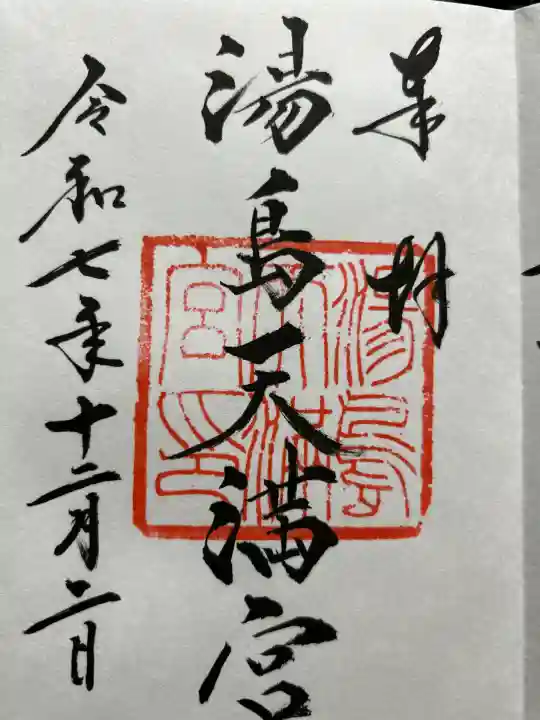 奉拝
湯島天満宮
湯島天満宮印
令和七年十二月二日